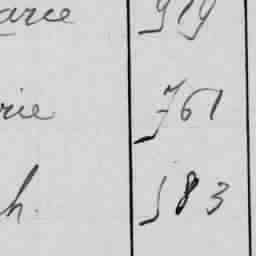 arie 919
rie 761
h. 583